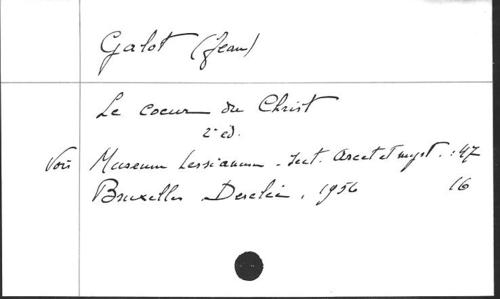 Galot (Jean)
Le coeur du Christ
2e ed.
Voir Museum Lessianum - Sect. Ascet et myst. : 47
Bruxelles Desclée, 1956 16